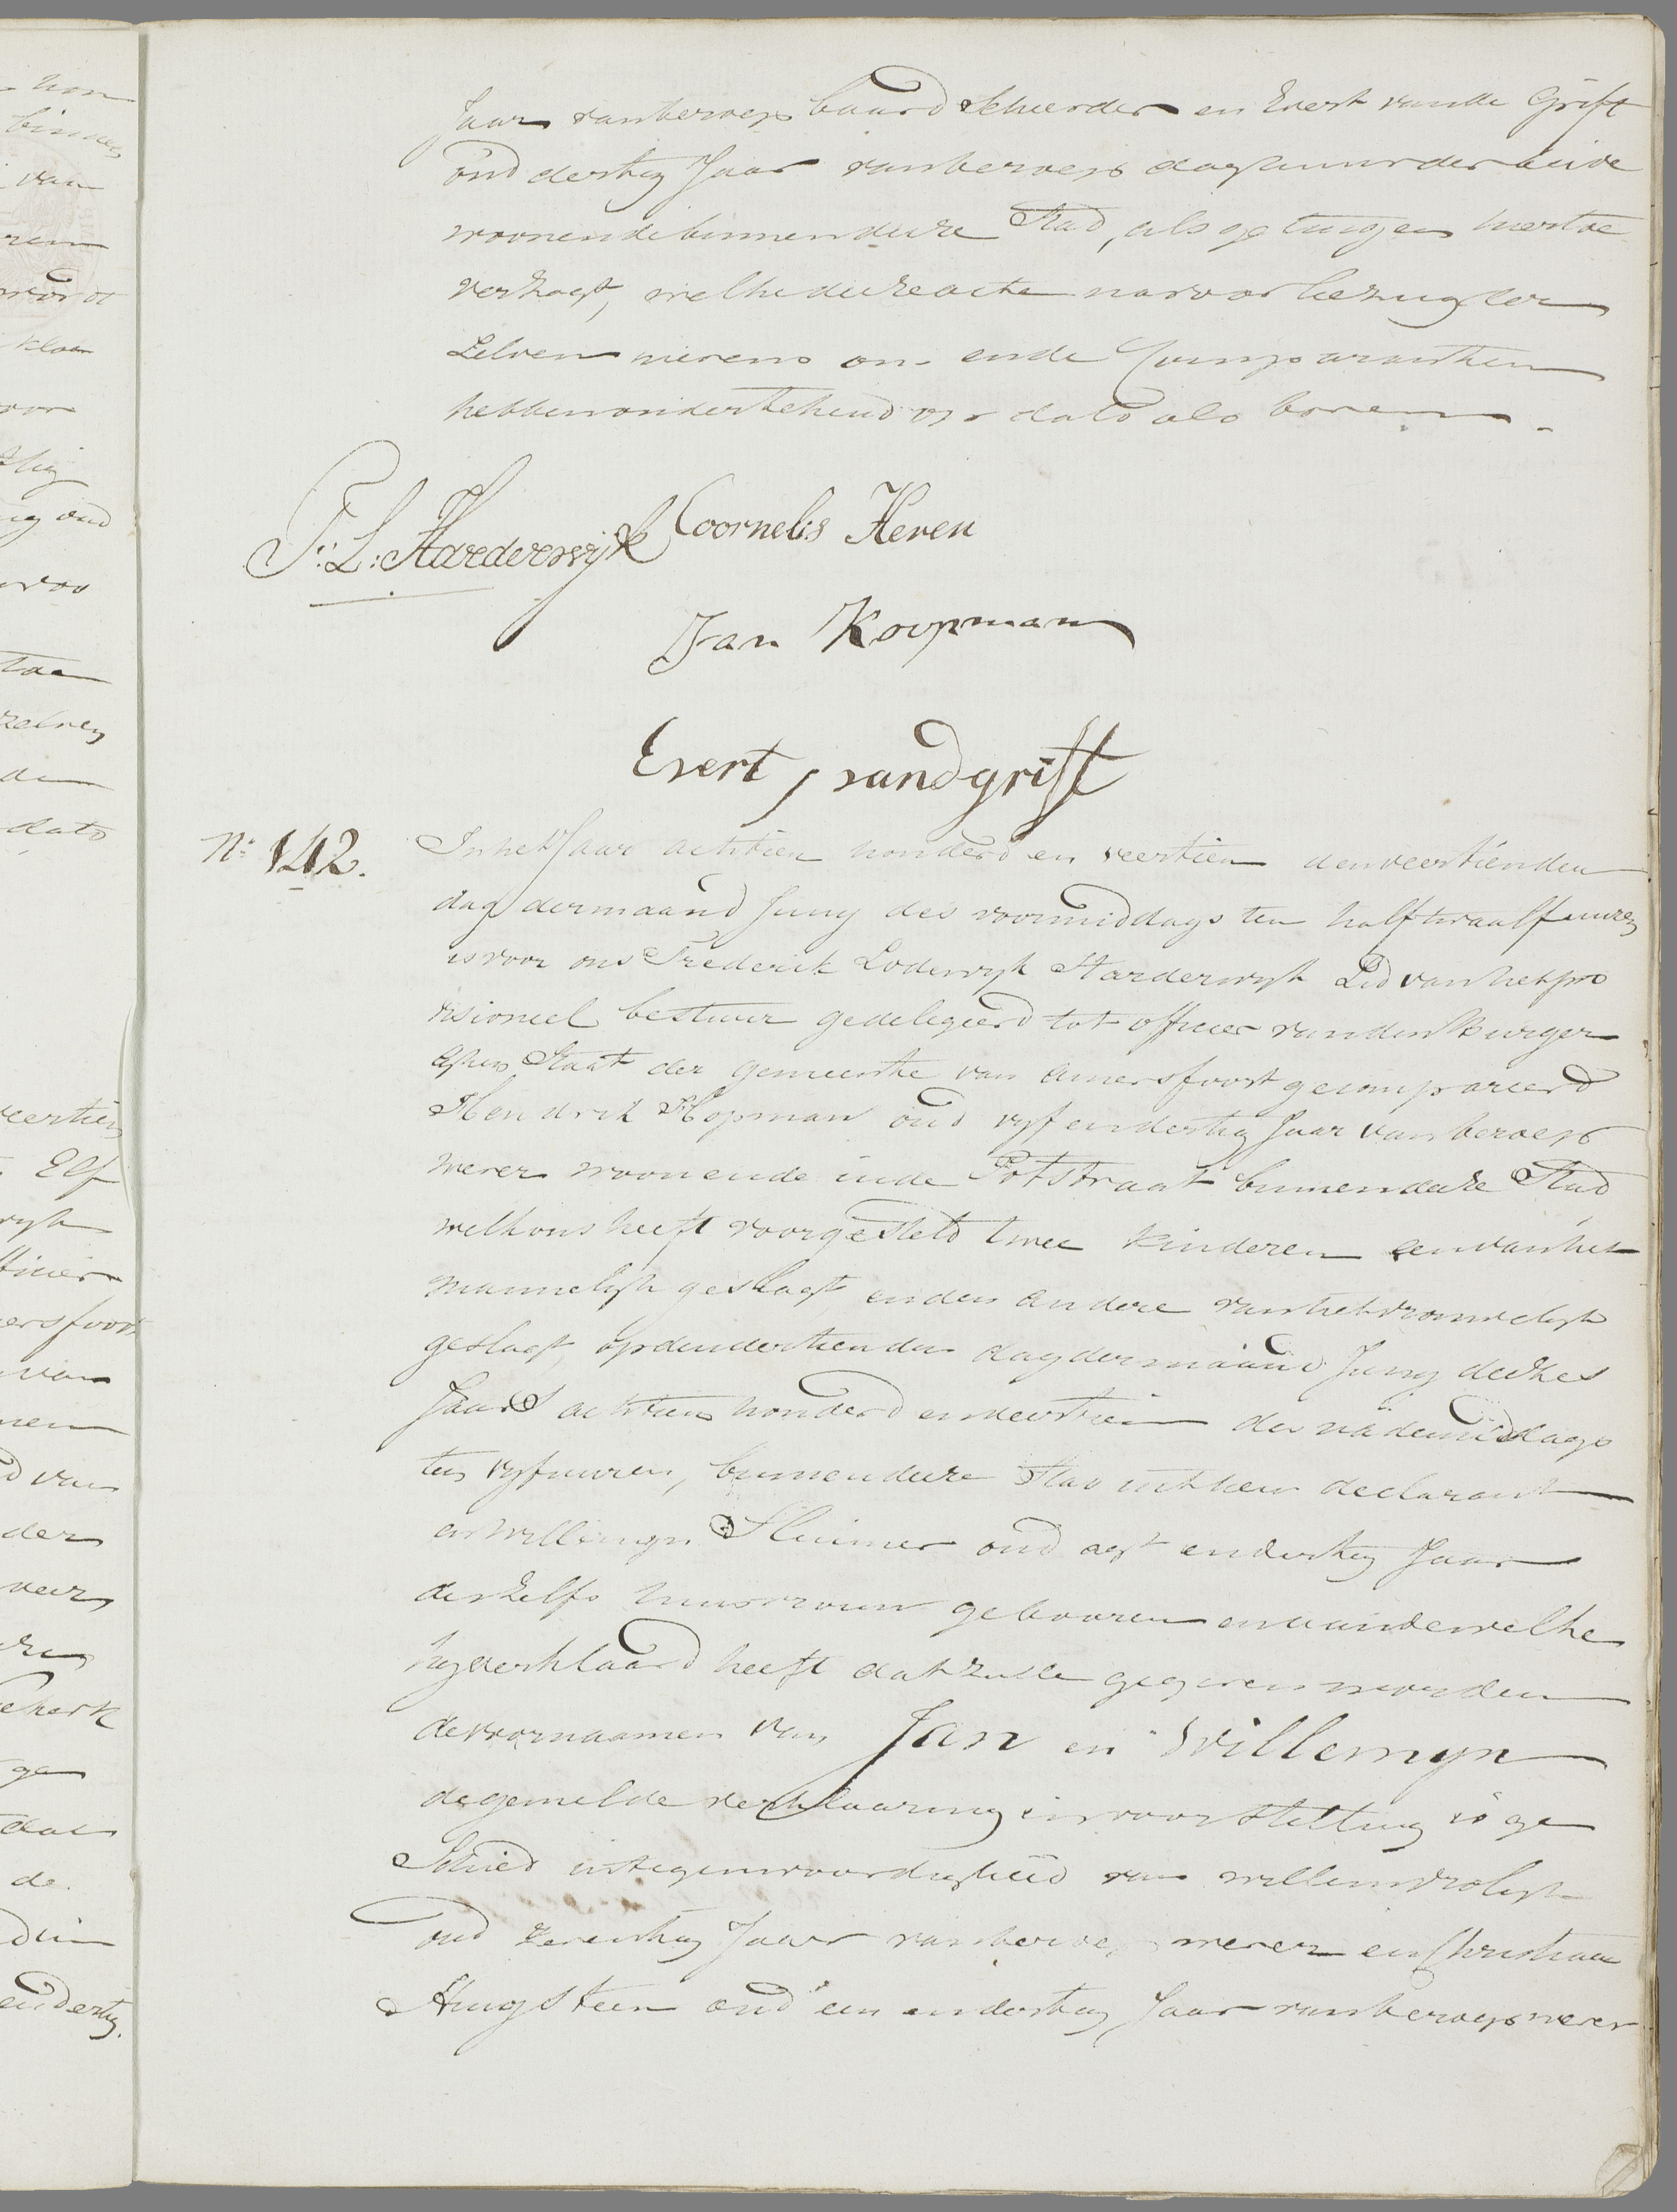 Jaar van beroep baardscheerder en Evert vande Grift
oud dertig Jaar van beroep daghuurder beide
woonende binnen deeze Stad, als getuigen hiertoe
verzogt, welke deeze acte na voorleezing der
zelven nevens ons ende Comparanten
hebben ondertekend op dato als boven.
F: L: Harderwijk Coornelis Heven
Jan Koopman
Evert vandgrift
No. 142. In het Jaar achtien honderd en veertien den veertienden
dag der maand Juny des voormiddags ten half twaalf uuren
is voor ons Frederik Lodewyk Harderwyk Lid van het pro
visioneel bestuur gedelegeerd tot officier van den Burger
lyken Staat der gemeente van Amersfoort gecompareerd
Hendrik Hopman oud vyf en dertig Jaar van beroep
wever woonende in de Potstraat binnen deeze Stad
welk ons heeft voorgesteld twee kinderen een van het
mannelyk geslagt en den andere van het vrouwelyk
geslagt, op den dertienden dag der maand Juny deezes
Jaars achtien honderd en veertien des nademiddags
ten vyf uuren, binnen deeze Stad uit hem declarant
en Willemyn Sluimer oud agt en dertig Jaar
deszelfs huisvrouw gebooren en aan dewelke
hy verklaard heeft dat zulle gegeven worden
de voornaamen van Jan en Willemyn
de gemelde verklaaring en voorstelling is ge
Schied in tegenwoordigheid van Willem Vrolyk
oud zeventig Jaar van beroep wever en Christiaan
Hingsteen oud een en dertig Jaar van beroep wever